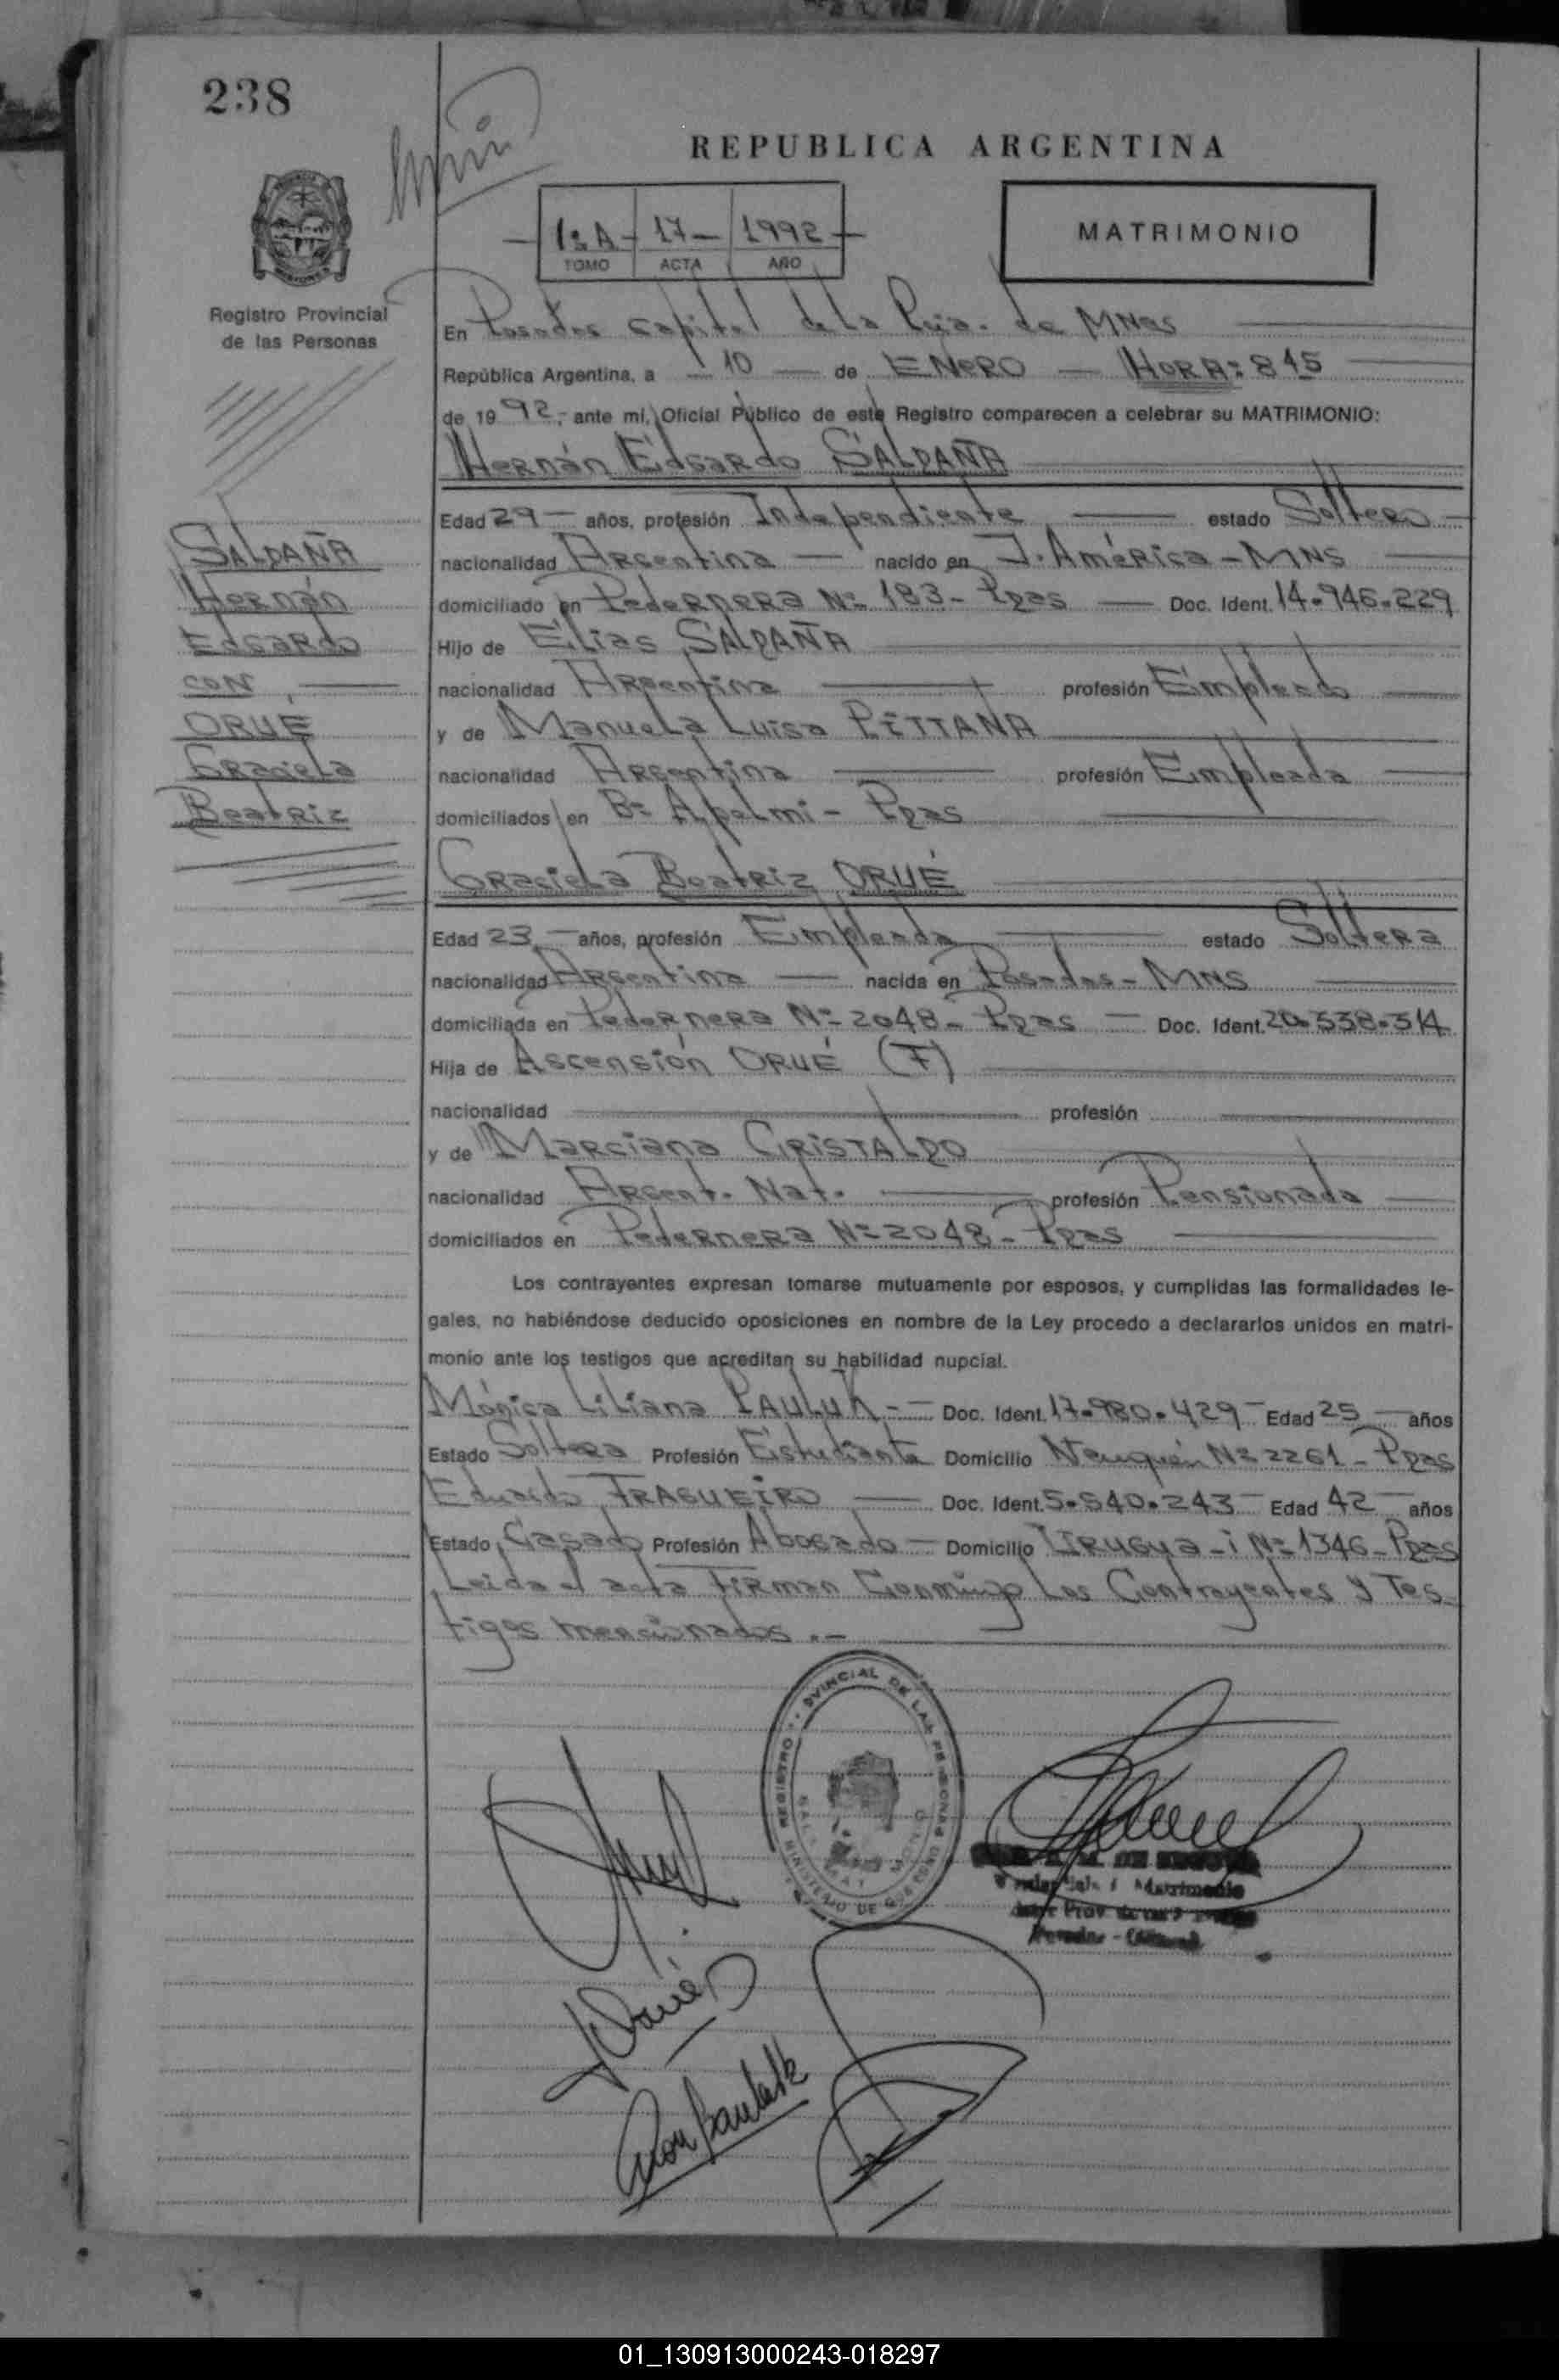 238
REPUBLICA ARGENTINA
1:A - 17 - 1992
TOMO ACTA AÑO
MATRIMONIO
Registro Provincial
de las Personas
En Posadas capital de la Pcia. de MNes
República Argentina, a 10 — de ENERO — HORA: 845
de 1992, ante mí, Oficial Público de este Registro comparecen a celebrar su MATRIMONIO:
Hernán Edgardo SALDAÑA
Edad 29 — años, profesión Independiente — estado Soltero
nacionalidad Argentina — nacido en J. América - MNS
domiciliado en Pedernera Nº 183 - Pdas — Doc. Ident. 14.946.229
Hijo de Elias SALDAÑA
nacionalidad Argentina — profesión Empleado
y de Manuela Luisa PITTANA
nacionalidad Argentina — profesión Empleada
domiciliados en Bº A - Pdas
Graciela Beatriz ORUÉ
Edad 23 — años, profesión Empleada — estado Soltera
nacionalidad Argentina — nacida en Posadas - MNS
domiciliada en Pedernera Nº 2048 - Pdas — Doc. Ident. 20.338.314
Hija de Ascensión ORUÉ (F)
nacionalidad — profesión —
y de Marciana CRISTALDO
nacionalidad Argent. Nat. — profesión Pensionada
domiciliados en Pedernera Nº 2048 - Pdas
Los contrayentes expresan tomarse mutuamente por esposos, y cumplidas las formalidades le-
gales, no habiéndose deducido oposiciones en nombre de la Ley procedo a declararlos unidos en matri-
monio ante los testigos que acreditan su habilidad nupcial.
Mónica Liliana PAULUK - Doc. Ident. 17.980.429 - Edad 25 — años
Estado Soltera Profesión Estudiante Domicilio Neuquén Nº 2261 - Pdas
Eduardo FRAGUEIRO — Doc. Ident. 5.540.243 - Edad 42 — años
Estado Casado Profesión Abogado — Domicilio Urugua-i Nº 1346 - Pdas
Leída el acta Firman Conmigo Los Contrayentes y Tes-
tigos mencionados .-
SALDAÑA
Hernán
Edgardo
CON
ORUÉ
Graciela
Beatriz
REGISTRO PROVINCIAL DE LAS PERSONAS
MINISTERIO DE GOBIERNO
Matrimonio
01_130913000243-018297